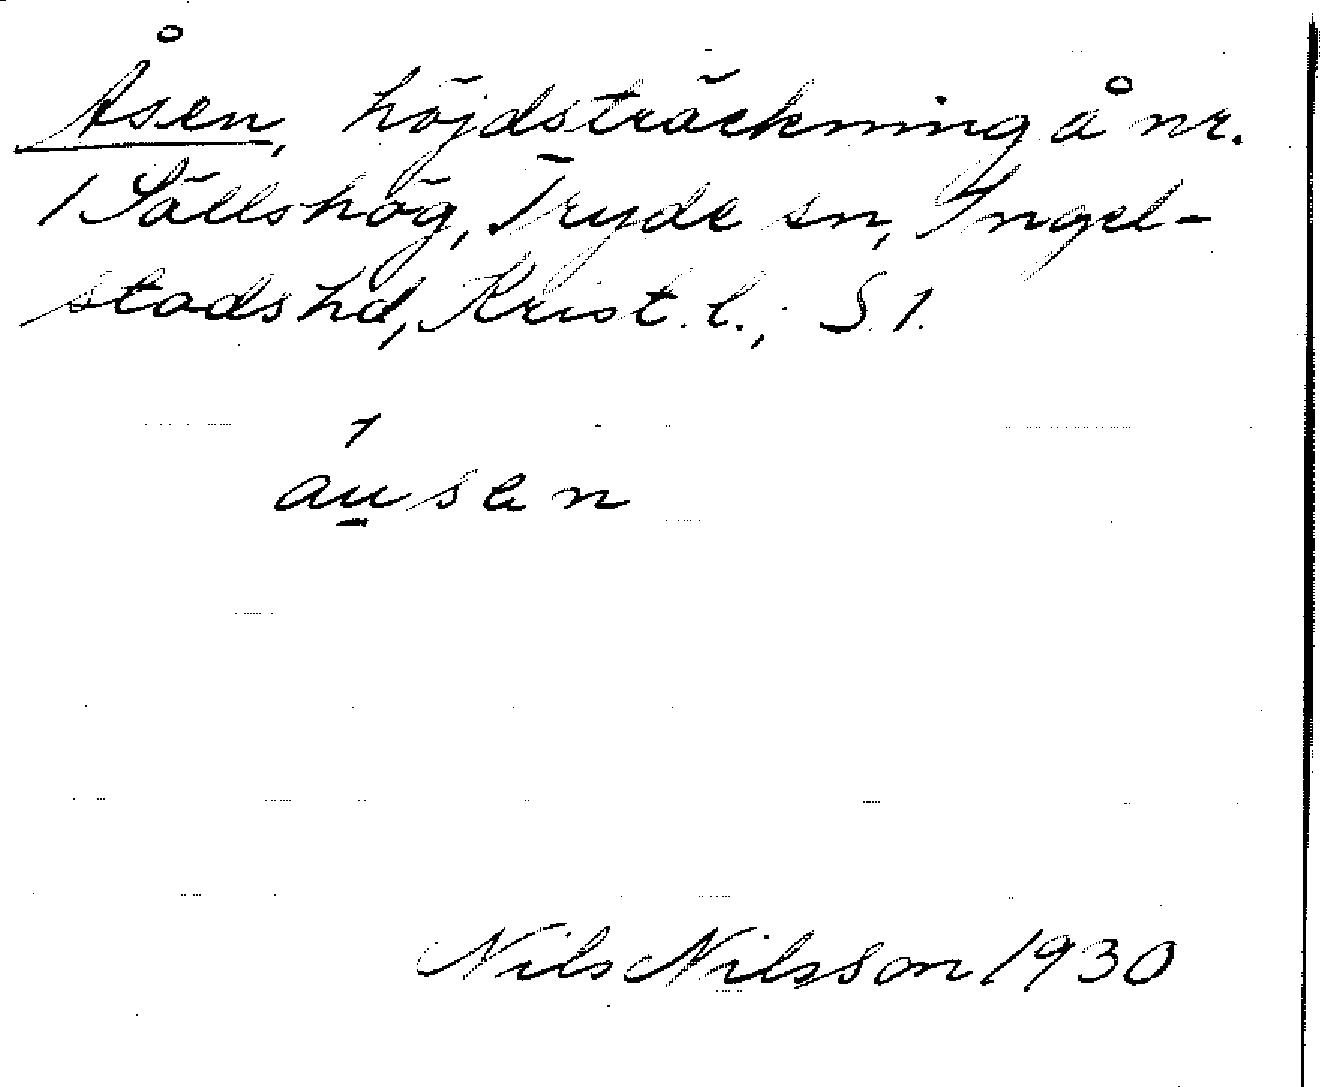 Åsen, höjdsträckning å nr.
1 Sällshög, Tryde sn, Ingel-
stads hd, Krist. l., S. 1.
äusen
Nils Nilsson 1930